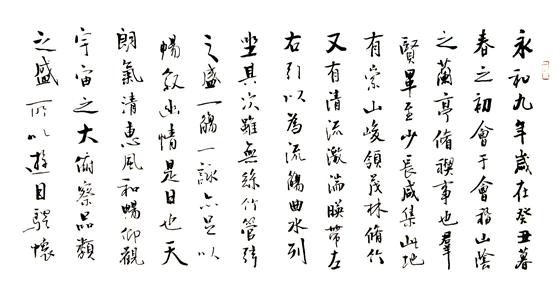 永和九年歲在癸丑暮
春之初會于會稽山陰
之蘭亭脩禊事也羣
賢畢至少長咸集此地
有崇山峻領茂林脩竹
又有清流激湍暎帶左
右引以為流觴曲水列
坐其次雖無絲竹管弦
之盛一觴一詠亦足以
暢敘幽情是日也天
朗氣清惠風和暢仰觀
宇宙之大俯察品類
之盛所以遊目騁懷